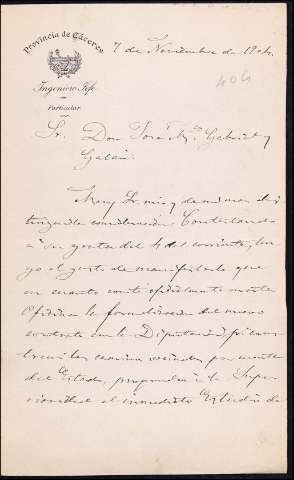 Provincia de Cáceres
Ingeniero Jefe
Particular
7 de Noviembre de 1904.
404
Sr. Don José Mª Gabriel y
Galán.
Muy Sr. mio y de mi mas dis-
tinguida consideracion: Contestando
á su grata del 4 del corriente, ten-
go el gusto de manifestarle que
en cuanto comuniquen oficialmente
la formalizacion del nuevo
contrato con la Diputacion,
los caminos vecinales por cuenta
del Estado, propondré á la Supe-
rioridad el inmediato de